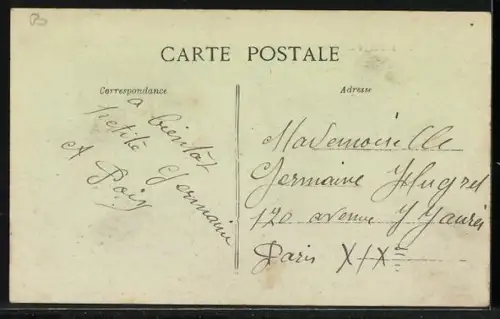 CARTE POSTALE
Correspondance
Adresse
a bientôt
petite Germaine
A
Mademoiselle
Germaine
120 avenue J Jaurès
Paris XIXe